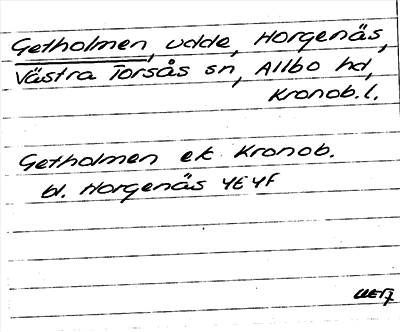 Getholmen, udde, Horgenäs,
Västra Torsås sn, Allbo hd,
Kronob. l.
Getholmen ek Kronob.
bl. Horgenäs 4E4f